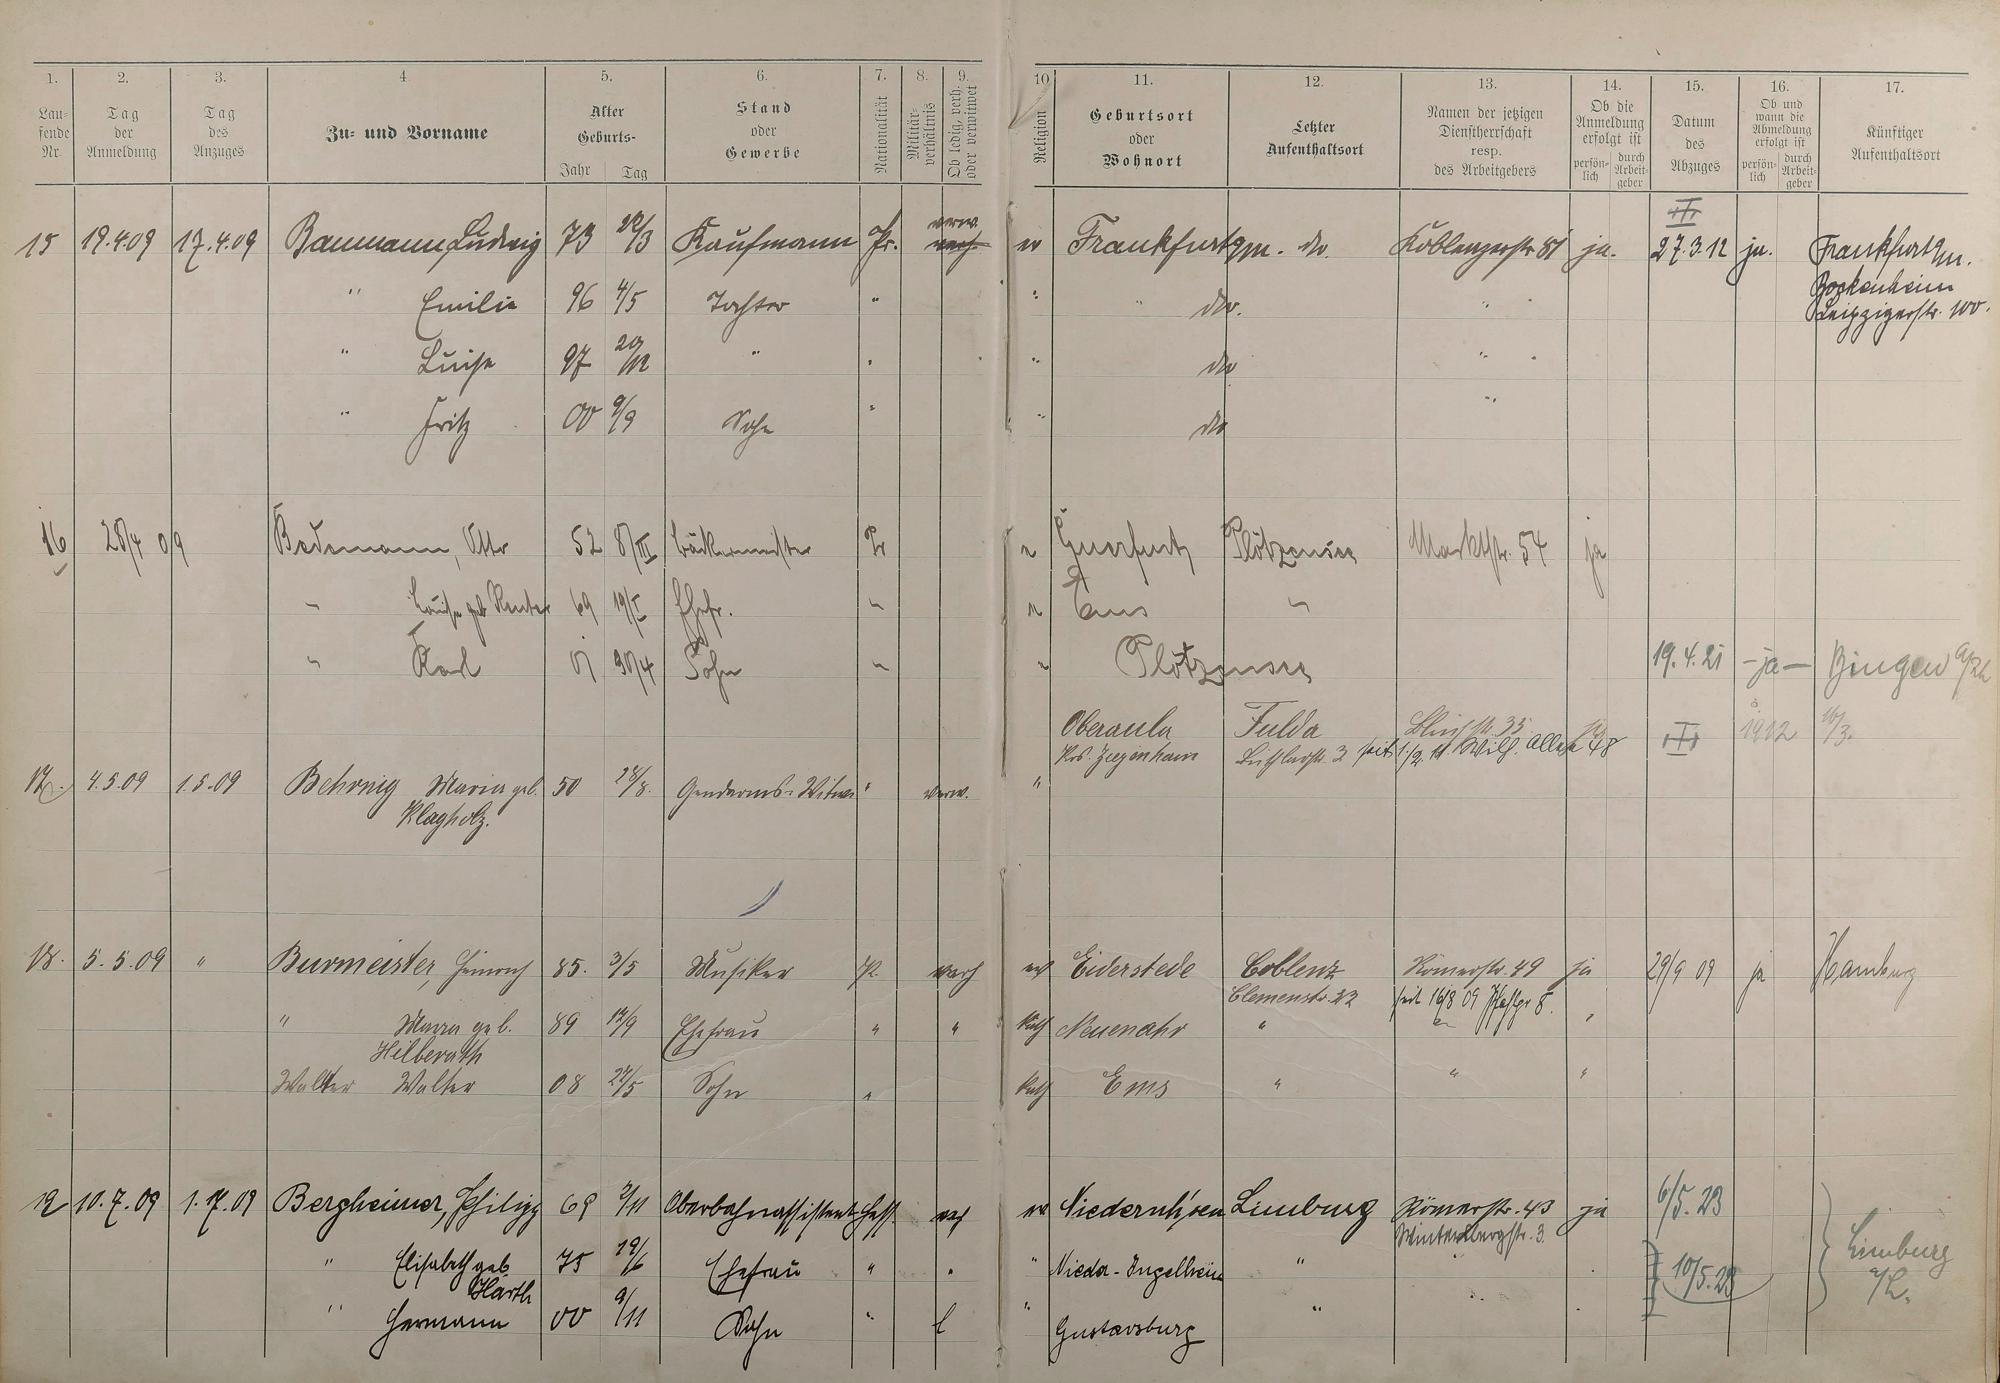 1. 2. 3. 4 5. 6. 7. 8. 9. 10 11. 12. 13. 14. 15. 16. 17.
Laufende Nr.
Tag der Anmeldung
Tag des Anzuges
Zu- und Vorname
Alter
Geburts-
Jahr Tag
Stand oder Gewerbe
Nationalität
Militärverhältnis
Ob ledig, verh. oder verwitwet
Religion
Geburtsort oder Wohnort
Letzter Aufenthaltsort
Namen der jetzigen Dienstherrschaft resp. des Arbeitgebers
Ob die Anmeldung erfolgt ist
persönlich durch Arbeitgeber
Datum des Abzuges
Ob und wann die Abmeldung erfolgt ist
persönlich durch Arbeitgeber
Künftiger Aufenthaltsort
verw. III
15 19.4.09 17.4.09 Baumann, Ludwig 73 Kaufmann Pr. verh. ev Frankfurt a/m. do. Koblenzerstr 81 ja. 27.3.12 ja. Frankfurt a/m.
Bockenheim
" Emilie 96 4/5 Tochter " " " do. " Leipzigerstr. 100.
" Luise 97 " " " do "
" Fritz 00 9/9 Sohn " " do "
16 28/4 09 Bedemann, Otto 52 8/III Bäckermeister Pr Querfurt Plötzensee Marktstr. 54 ja
" Louise geb Reuter 69 19/I Ehefr. " Ems "
" Karl 01 30/4 Sohn " " Plötzensee 19.4.21 - ja - Bingen a/Rh
Oberaula Fulda 35 ja III 1912 16/3.
Krs. Ziegenhain 2 seit 1/2. 11. Wilh. Allee 48
17. 4.5.09 1.5.09 Behrnig Maria geb. 50 28/8. Gendarms-Witwe " verw. "
Klagholz.
18. 5.5.09 " Burmeister, Heinrich 85. 3/5 Musiker P. verh ev Eiderstede Coblenz Römerstr. 49 ja 29/9 09 ja Hamburg
Clemenstr. 22 seit 16/8 09 8.
" Maria geb. 89 Ehefrau " " Kath Neuenahr " "
Hilberath
Walter Walter 08 27/5 Sohn " Kath Ems " " "
19 10.7.09 1.7.09 Bergheimer, Philipp 69 3/11 Oberbahnassistent Hess. verh ev Niedernhausen Limburg Römerstr. 43 ja 6/5.23
Wintersbergstr. 3.
" Elisabeth geb 75 19/6 Ehefrau " " " Nieder-Ingelheim " 10/5.23 Limburg a/L.
Harth
" Hermann 00 9/11 Sohn " l " Gustavsburg "